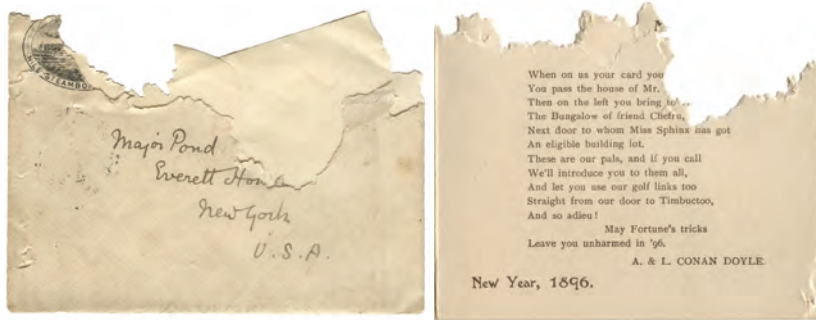 NILE STEAMBO
Major Pond
Everett
New York
U.S.A.
When on us your card you
You pass the house of Mr.
Then on the left you bring to
The Bungalow of friend
Next door to whom Miss Sphinx has got
An eligible building lot.
These are our pals, and if you call
We'll introduce you to them all,
And let you use our golf links too
Straight from our door to Timbuctoo,
And so adieu!
May Fortune's tricks
Leave you unharmed in '96.
A. & L. CONAN DOYLE.
New Year, 1896.